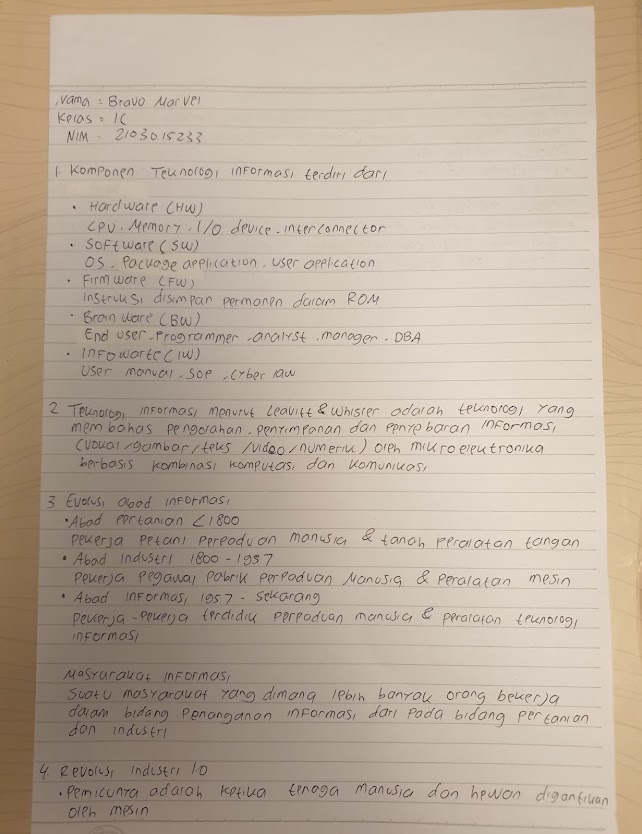 Nama = Bravo Marvel
Kelas = 1C
NIM = 2103015233
1. Komponen Teknologi informasi terdiri dari
• Hardware (HW)
CPU. Memory. I/O device. interconnector
• Software (SW)
OS. Package application. User application
• Firmware (FW)
Instruksi disimpan permanen dalam ROM
• Brainware (BW)
End user. Programmer. analyst. manager. DBA
• Infowarte (IW)
User manual. SOP. Cyber law
2 Teknologi informasi menurut Leavitt & Whisler adalah teknologi yang
membahas pengolahan. Penyimpanan dan penyebaran informasi
(vokal/gambar/teks/video/numerik) oleh mikroelektronika
berbasis kombinasi komputasi dan komunikasi
3 Evolusi abad informasi
• Abad Pertanian <1800
Pekerja Petani Perpaduan manusia & tanah peralatan tangan
• Abad industri 1800 - 1957
Pekerja Pegawai Pabrik Perpaduan Manusia & Peralatan mesin
• Abad informasi 1957 - sekarang
Pekerja - Pekerja terdidik Perpaduan manusia & peralatan teknologi
informasi
Masyarakat informasi
Suatu masyarakat yang dimana lebih banyak orang bekerja
dalam bidang Penanganan informasi dari pada bidang pertanian
dan industri
4. Revolusi industri 1.0
• Pemicunya adalah ketika tenaga manusia dan hewan digantikan
oleh mesin